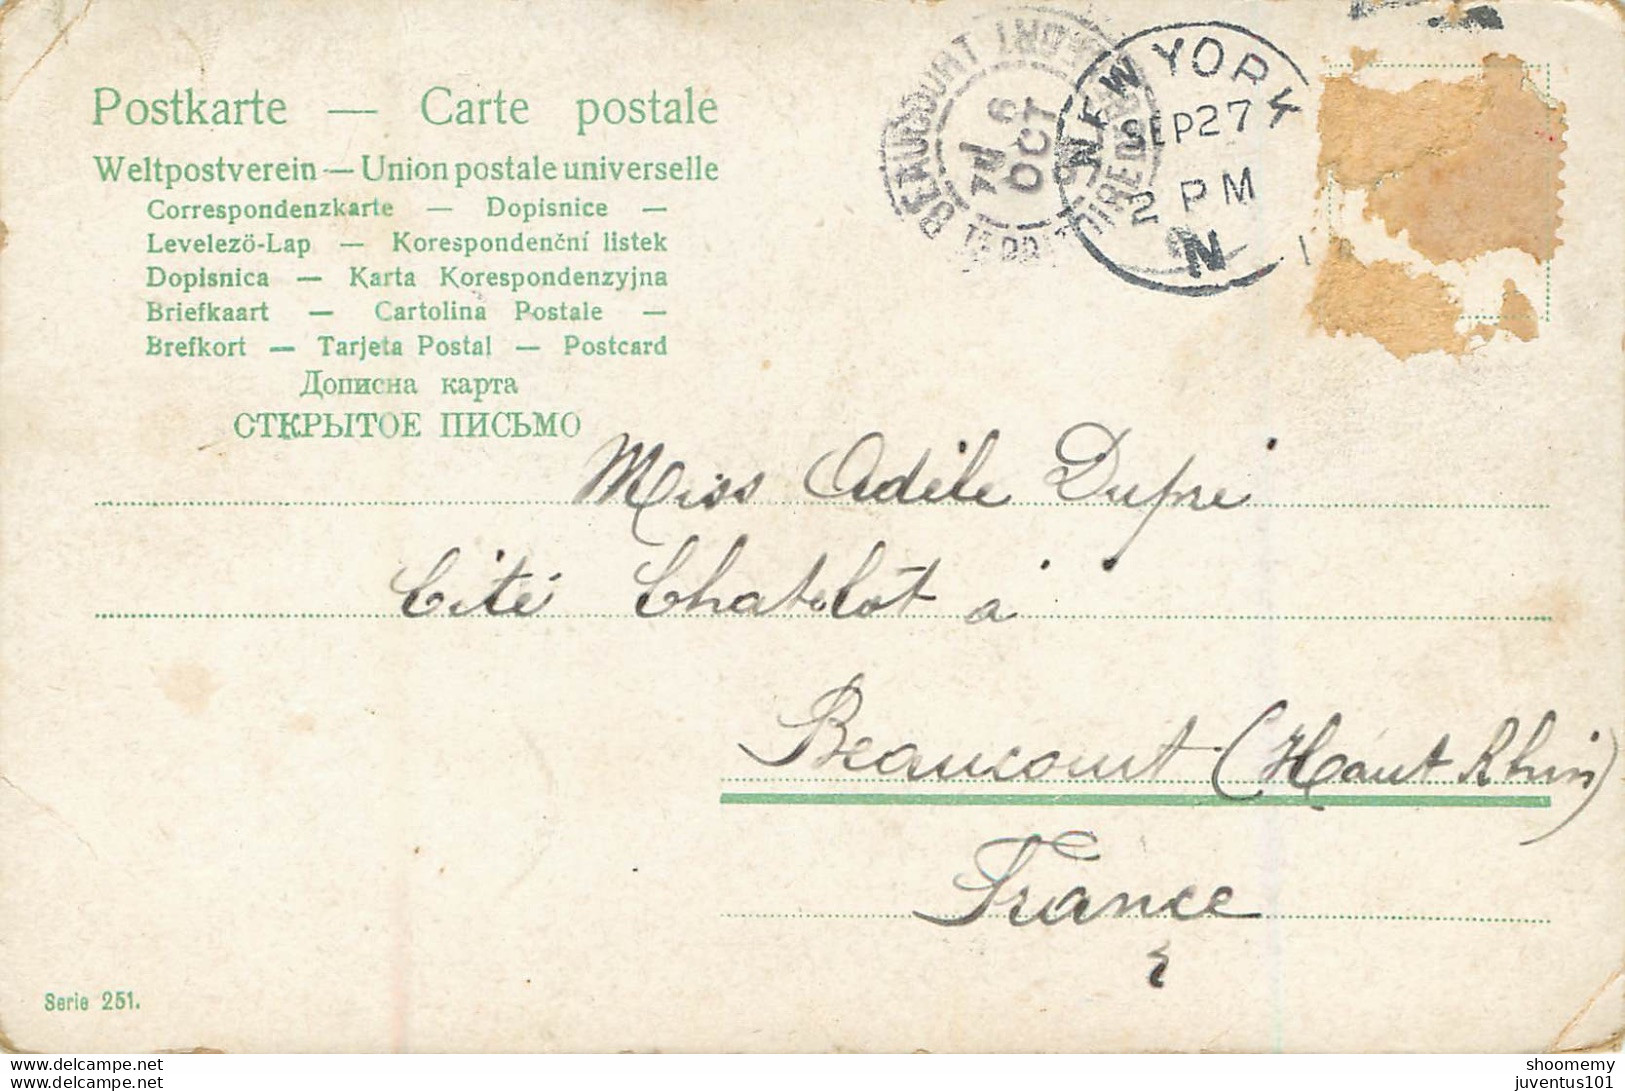 Postkarte — Carte postale
Weltpostverein — Union postale universelle
Correspondenzkarte — Dopisnice —
Levelező-Lap — Korespondenční listek
Dopisnica — Karta Korespondenzyjna
Briefkaart — Cartolina Postale —
Brefkort — Tarjeta Postal — Postcard
Дописна карта
ОТКРЫТОЕ ПИСЬМО
BEAUCOURT
6
OCT
NEW YORK
SEP 27
2 PM
N
Miss Adèle Dupré
Cité Chatelôt à
Beaucourt (Haut Rhin)
France
Serie 251.
shoomemy
juventus101